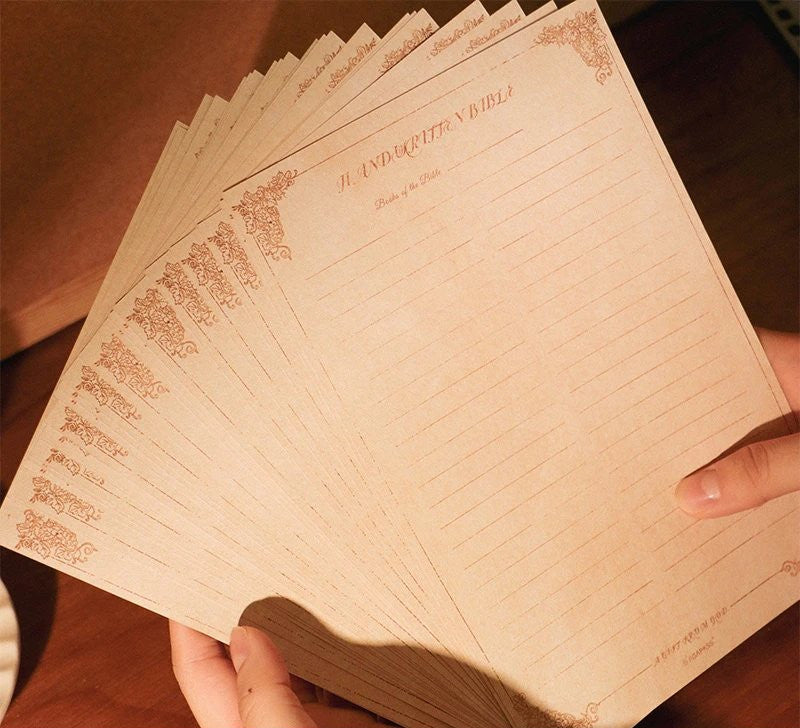 HANDWRITTEN BIBLE
Books of the Bible
A GIFT FROM GOD